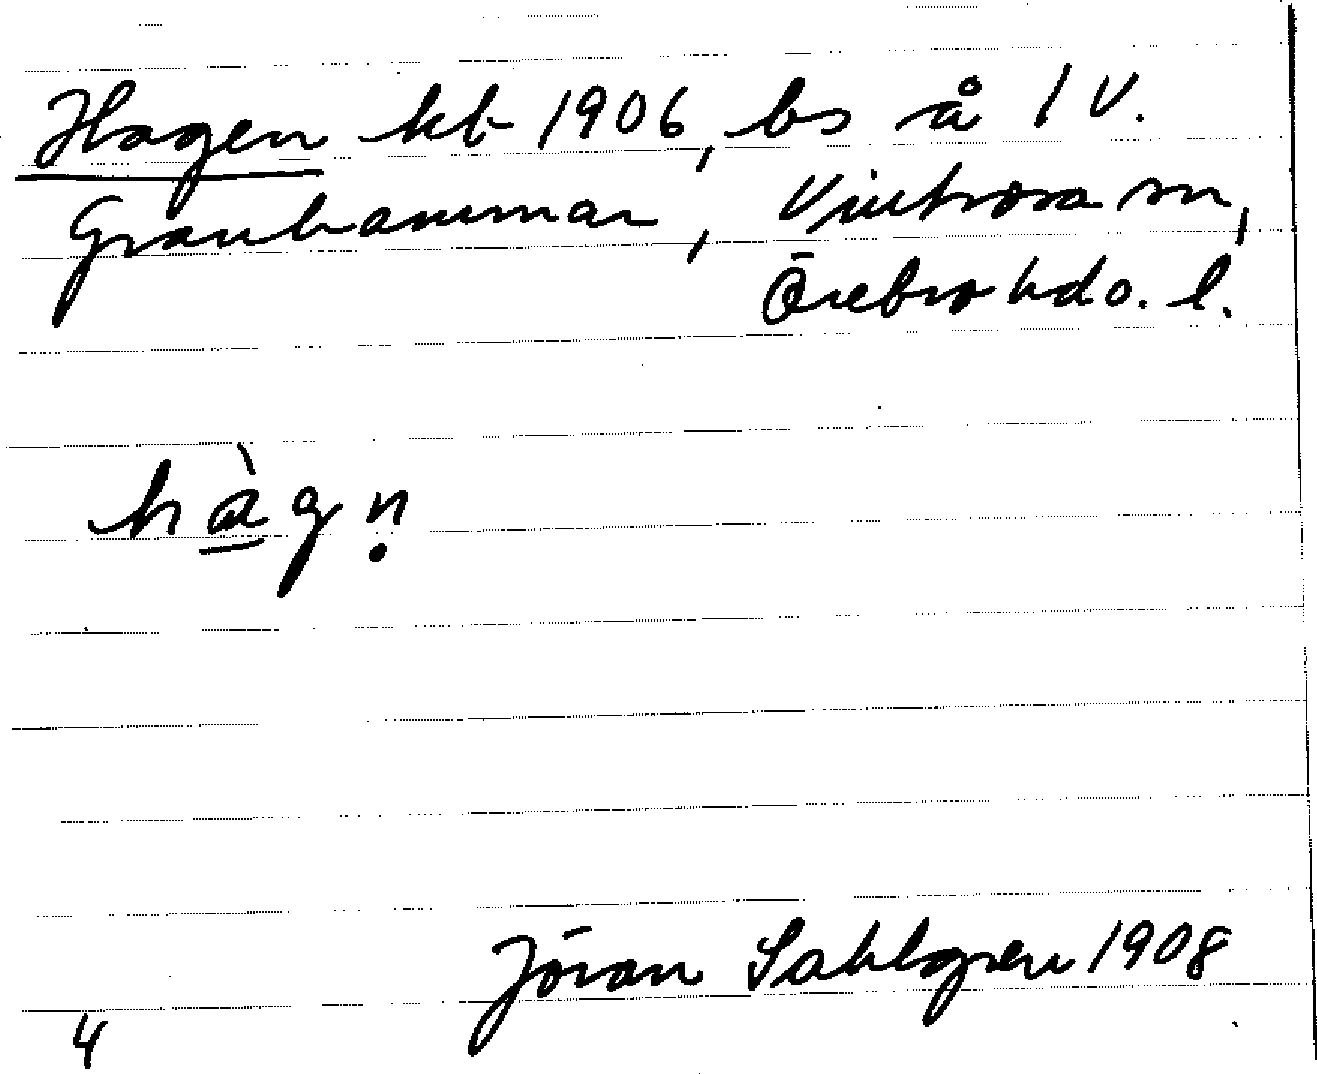 Hagen kb 1906, bs å 1 V.
Granhammar, Vintrosa sn,
Örebro hd Ö. l.
hàgṇ
Jöran Sahlgren 1908
4